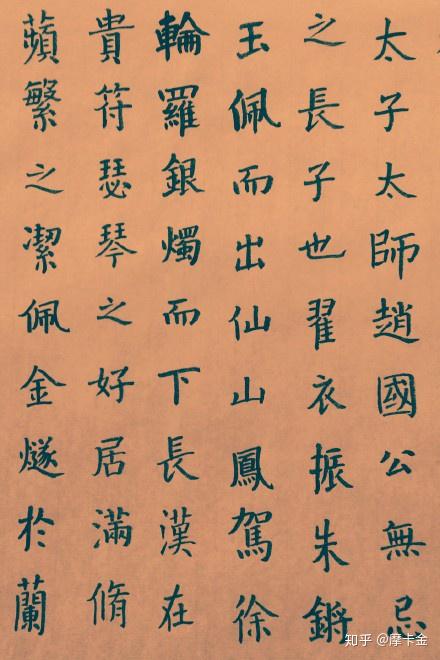 太子太師趙國公無忌
之長子也翟衣振朱鏘
玉佩而出仙山鳳駕徐
輪羅銀燭而下長漢在
貴符瑟琴之好居滿脩
蘋繁之潔佩金燧於蘭
知乎 @摩卡金